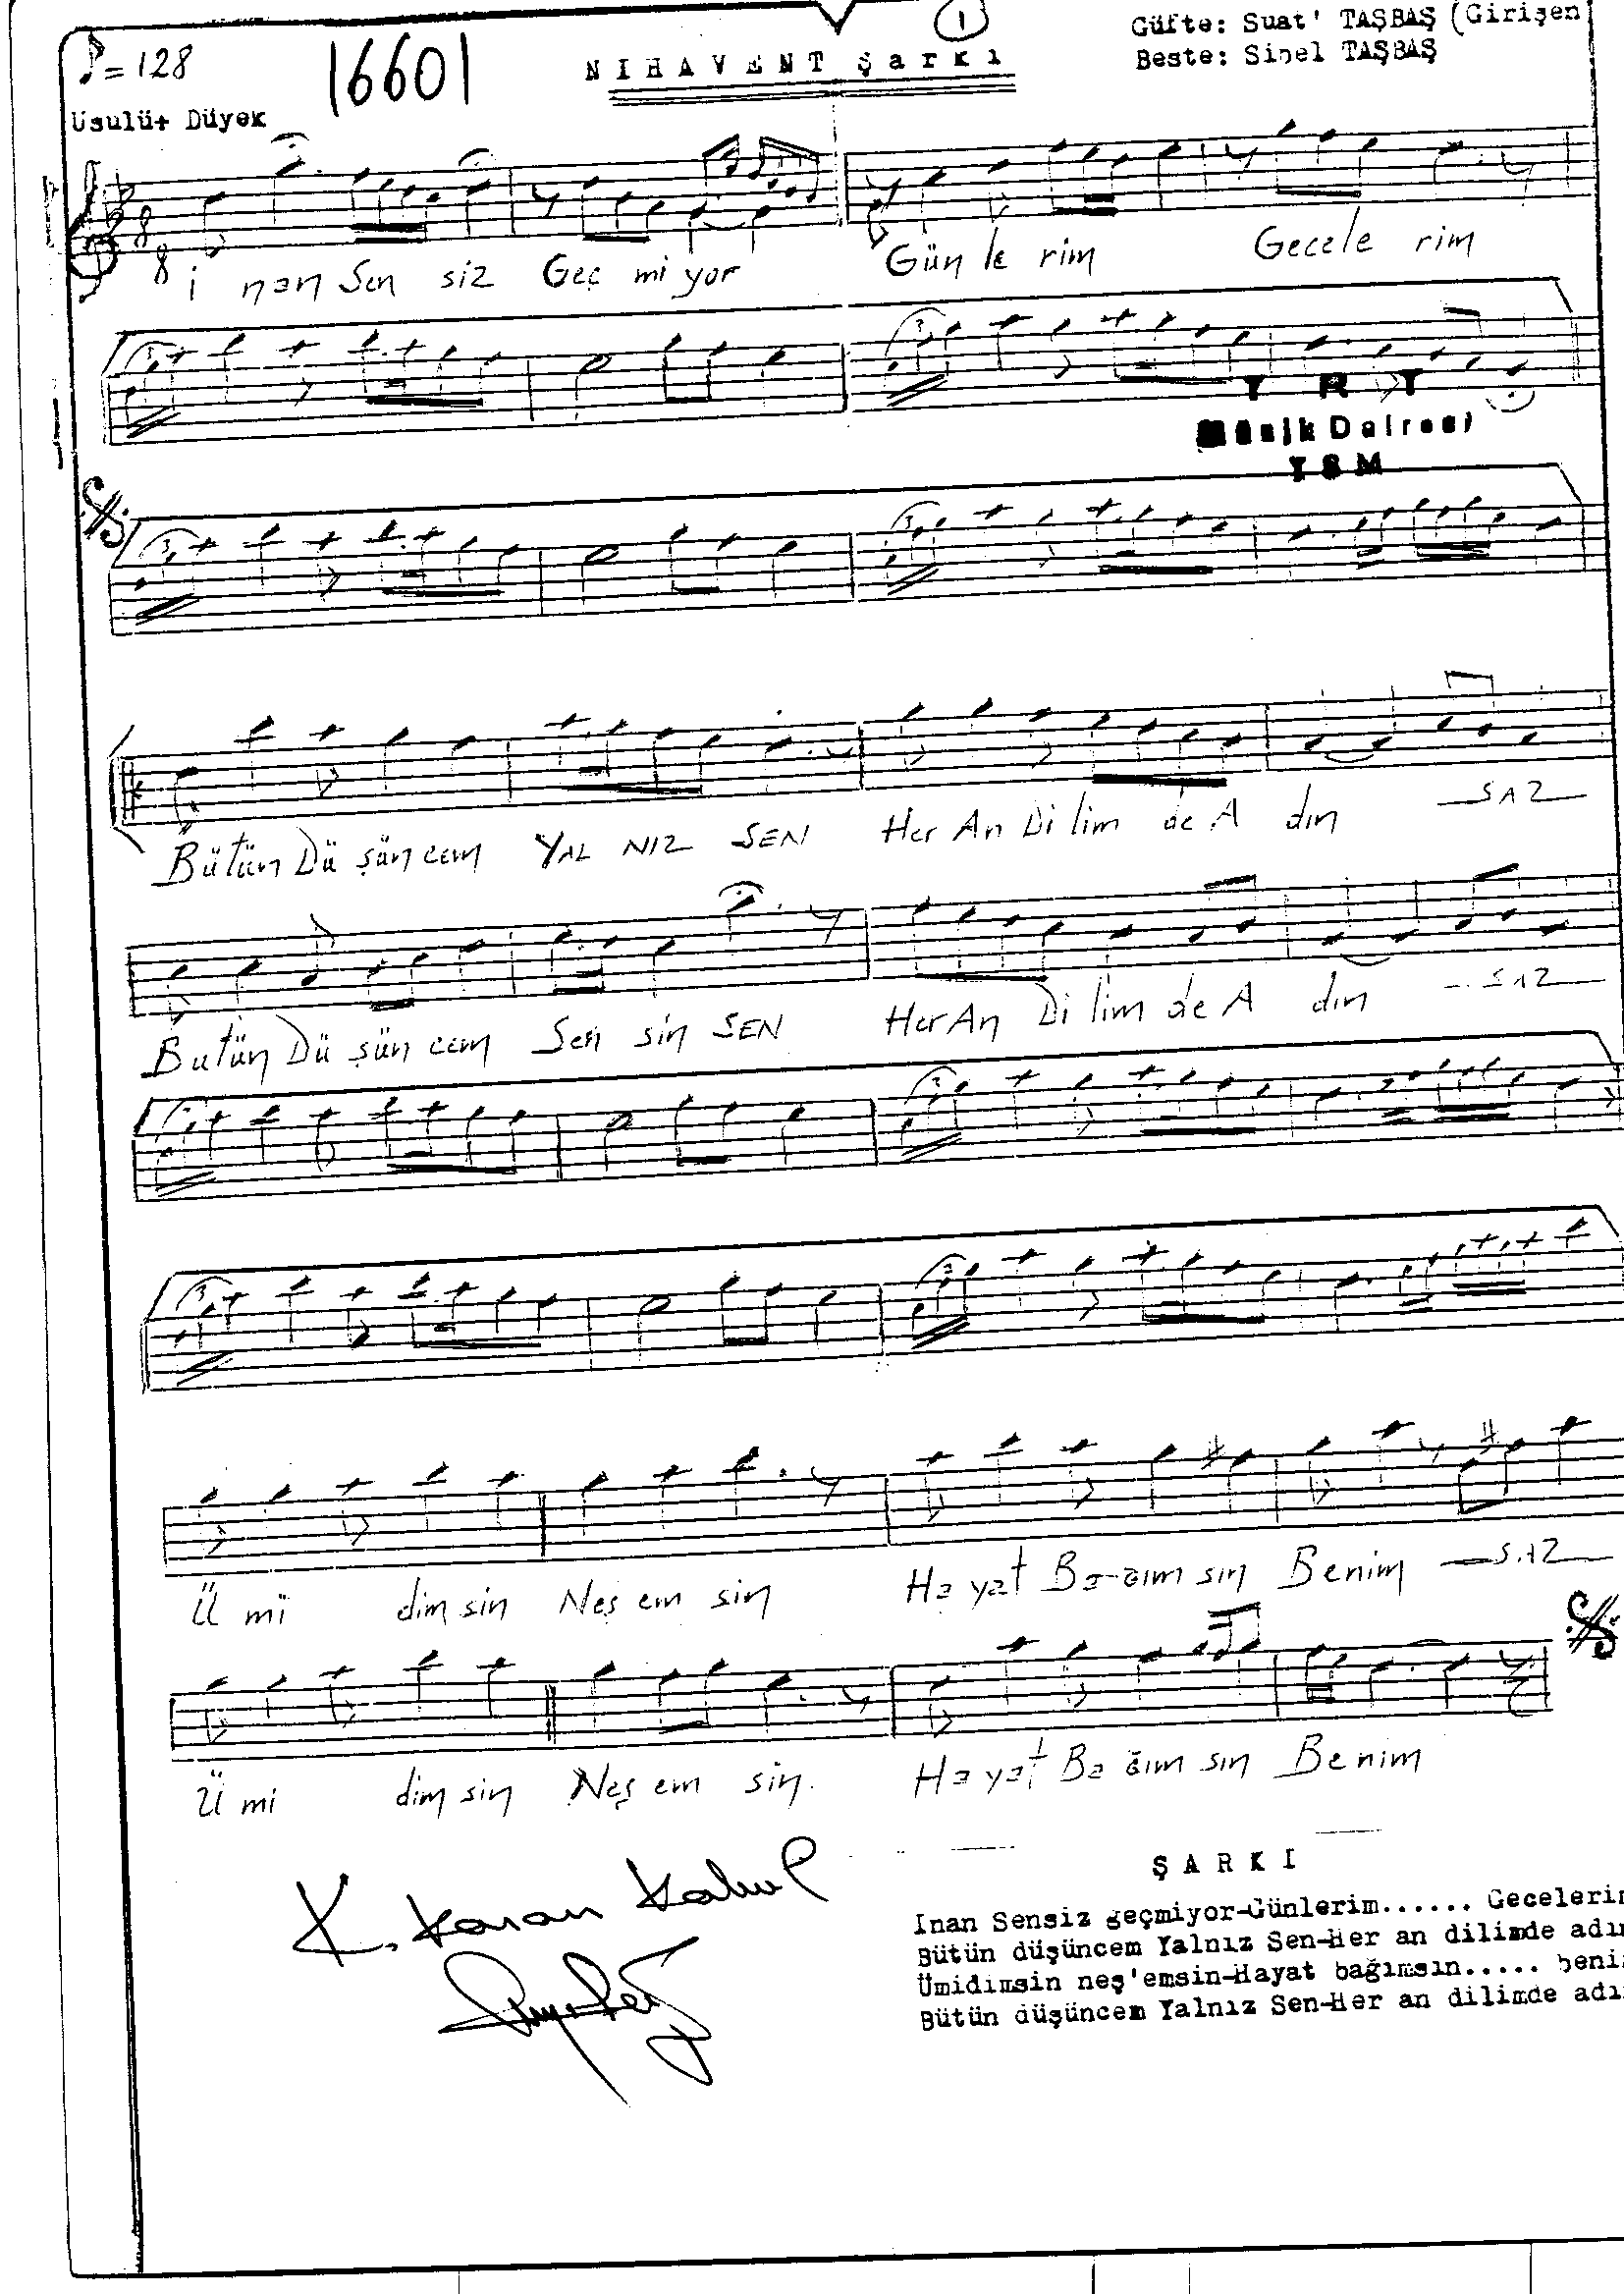 1
Güfte: Suat' TAŞBAŞ (Girişen
= 128
16601
NIHAVENT Şarkı
Beste: Sibel TAŞBAŞ
Usulü+ Düyek
8
8
i nan Sen siz Geç mi yor Gün le rim Gecele rim
3 3
T R T
Müzik Dairesi
TSM
3 3
Bütün Dü şün cem YAL NIZ SEN Her An Di lim de A dın SAZ
Butün Dü şün cem Sen sin SEN Her An Di lim de A dın SAZ
3 3
3 3
Ü mi dim sin Neş em sin Ha yat Ba-ğım sın Benim SAZ
Ü mi dim sin Neş em sin. Ha yat Ba ğım sın Benim
ŞARKI
Inan Sensiz geçmiyor-Günlerim...... Gecelerim
Bütün düşüncem Yalnız Sen-Her an dilimde adı
Ümidimsin neş'emsin-Hayat bağımsın..... beni
Bütün düşüncem Yalnız Sen-Her an dilimde adı